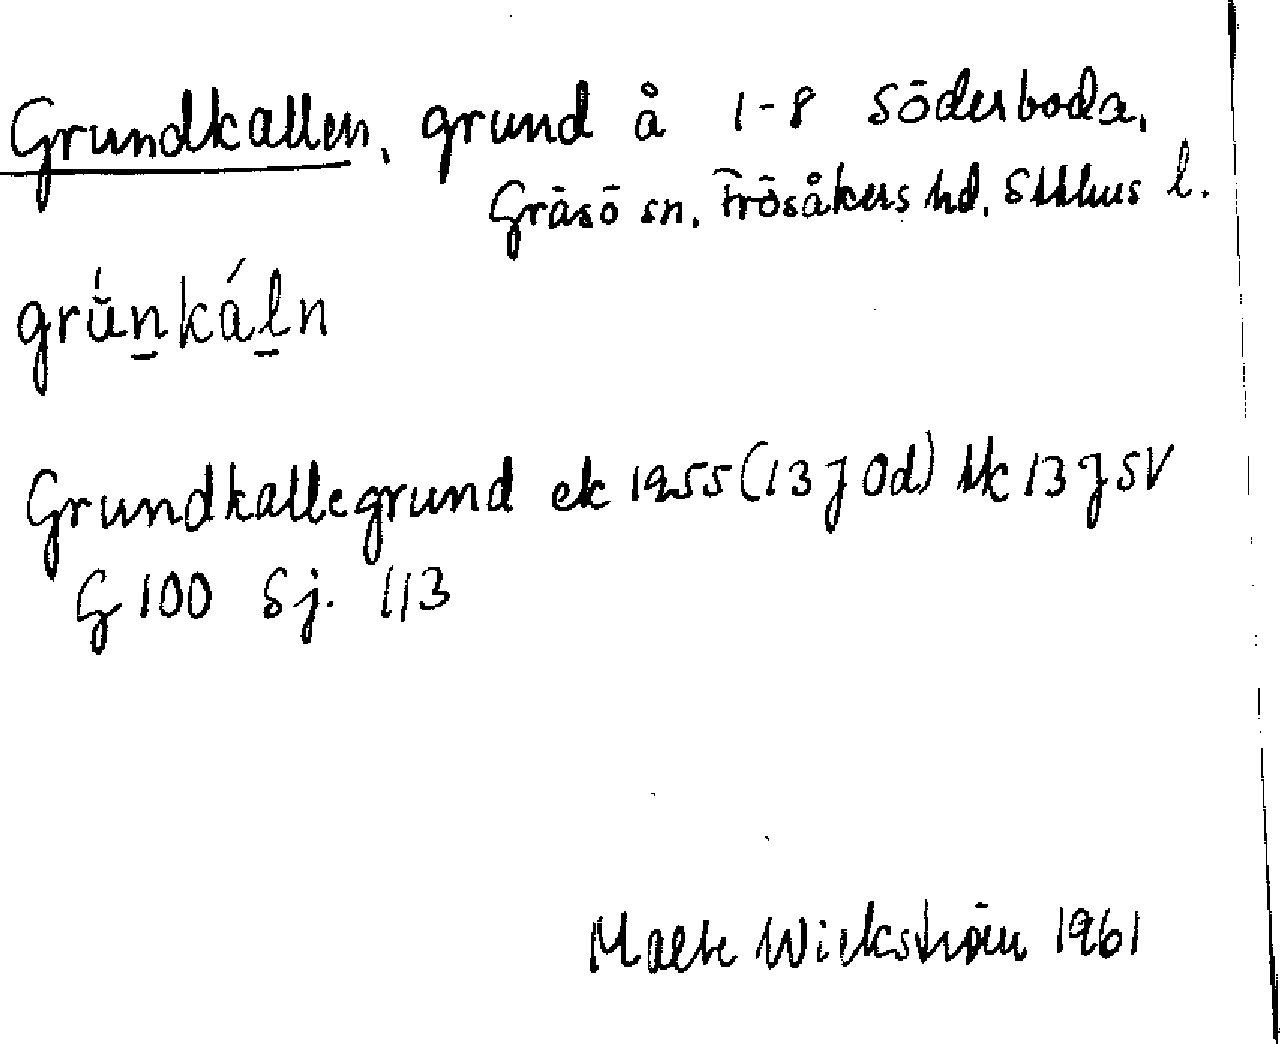 Grundkallen, grund å 1-8 Söderboda,
Gräsö sn, Frösåkers hd, Sthlms l.
grŭ́n̲kál̲n
Grundkallegrund ek 1955 (13 J 0d) tk 13 J SV
G 100 Sj. 113
Malte Wickström 1961